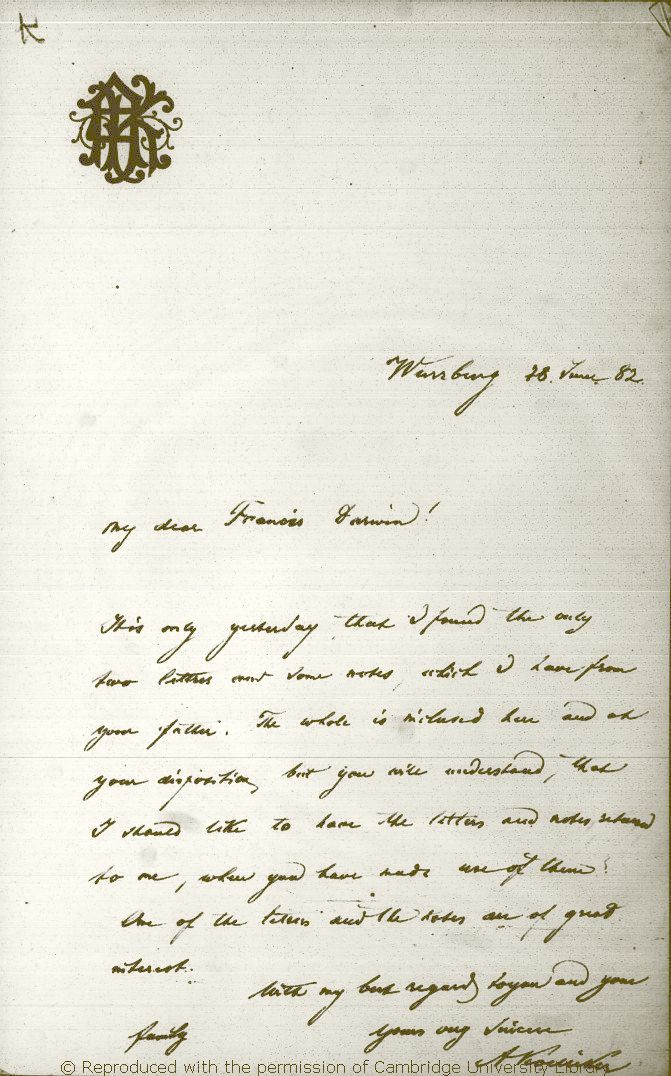 K
AK
Wurzburg 28. June. 82.
My dear Francis Darwin!
It is only yesterday, that I found the only
two letters and some notes, which I have from
your father. The whole is inclused here and at
your disposition, but you will understand, that
I should like to have the letters and notes returned
to me, when you have made use of them.
One of the letters and the notes are of great
interest.
With my best regards to you and your
family yours very sincere
A.
© Reproduced with the permission of Cambridge University Library